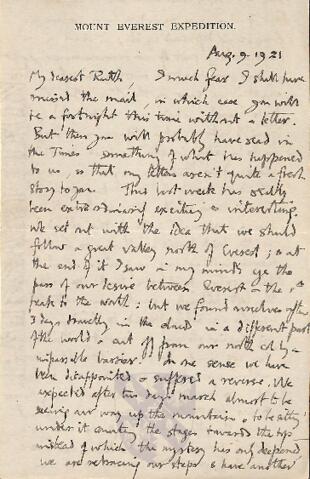 MOUNT EVEREST EXPEDITION.
Aug. 9. 1921
My dearest Ruth, I much fear I shall have
missed the mail, in which case you will
be a fortnight this time without a letter.
But then you will probably have read in
the Times something of what has happened
to us, so that my letters aren't quite a fresh
story to you. This last week has really
been extraordinarily exciting & interesting.
We set out with the idea that we should
follow a great valley north of Everest; & at
the end of it I saw in my mind's eye the
pass of our desire between Everest & the
peak to the north: but we found ourselves after
3 days travelling in the clouds in a different part
of the world & cut off from our north col by
impassable barrier. In one sense we have
been disappointed & suffered a reverse. We
expected after two days march almost to be
seeing our way up the mountain & to be sitting
under it counting the stages towards the top
instead of which the mystery has only deepened,
we are retracing our steps & have another